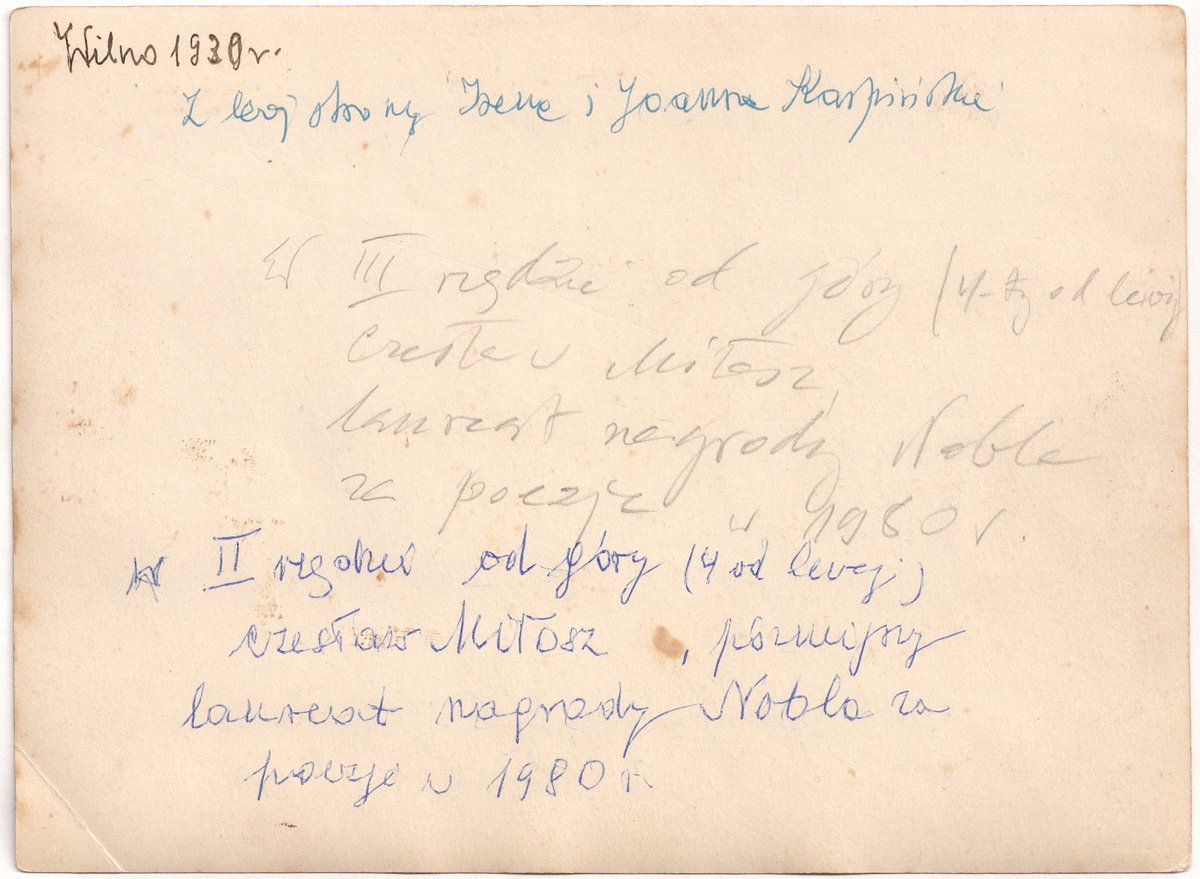 Wilno 1930 r.
Z lewej strony Irena i Joanna Karpińskie
W III rzędzie od góry (4-ty od lewej
Czesław Miłosz,
laureat nagrody Nobla
za poezję w 1980 r.
W II rzędzie od góry (4 od lewej)
Czesław Miłosz, późniejszy
laureat nagrody Nobla za
poezję w 1980 r.